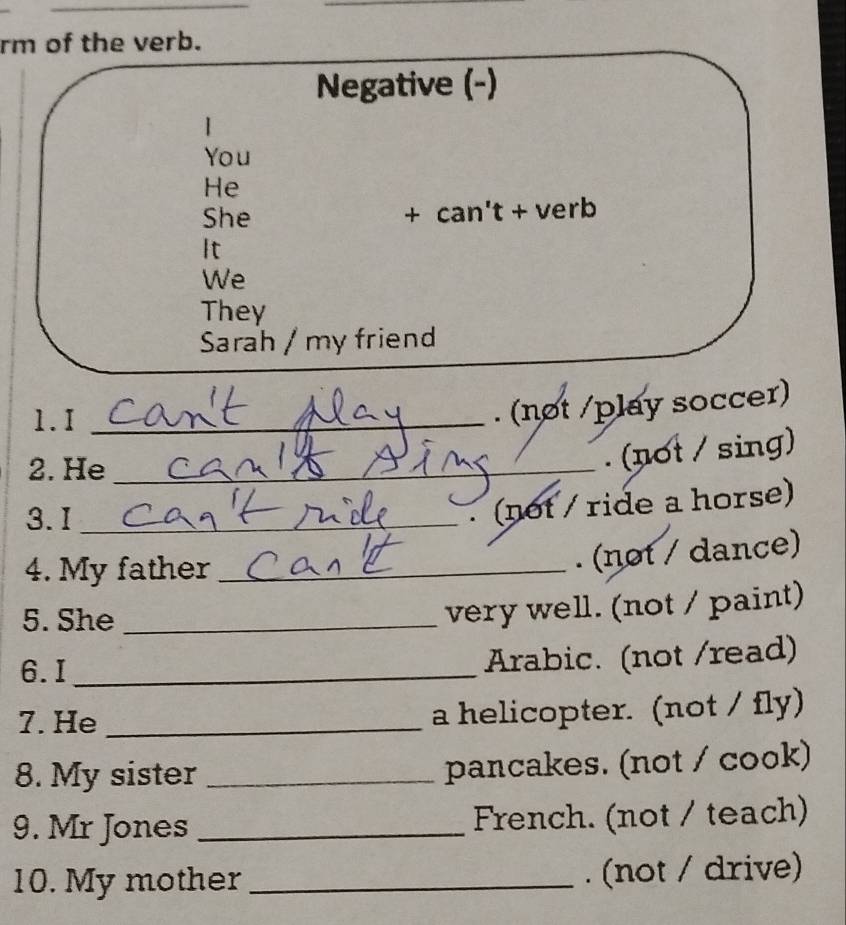 rm of the verb.
Negative (-)
I
You
He
She + can't + verb
It
We
They
Sarah / my friend
1. I can't play . (not /play soccer)
2. He can't sing . (not / sing)
3. I can't ride . (not / ride a horse)
4. My father can't . (not / dance)
5. She ____ very well. (not / paint)
6. I ____ Arabic. (not /read)
7. He ____ a helicopter. (not / fly)
8. My sister ____ pancakes. (not / cook)
9. Mr Jones ____ French. (not / teach)
10. My mother ____ . (not / drive)